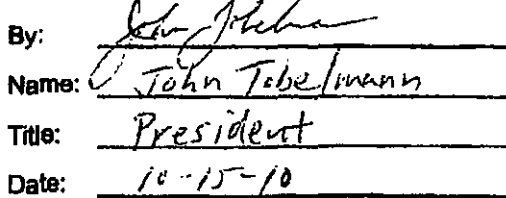 By: John Tobelmann
Name: John Tobelmann
Title: President
Date: 10-15-10